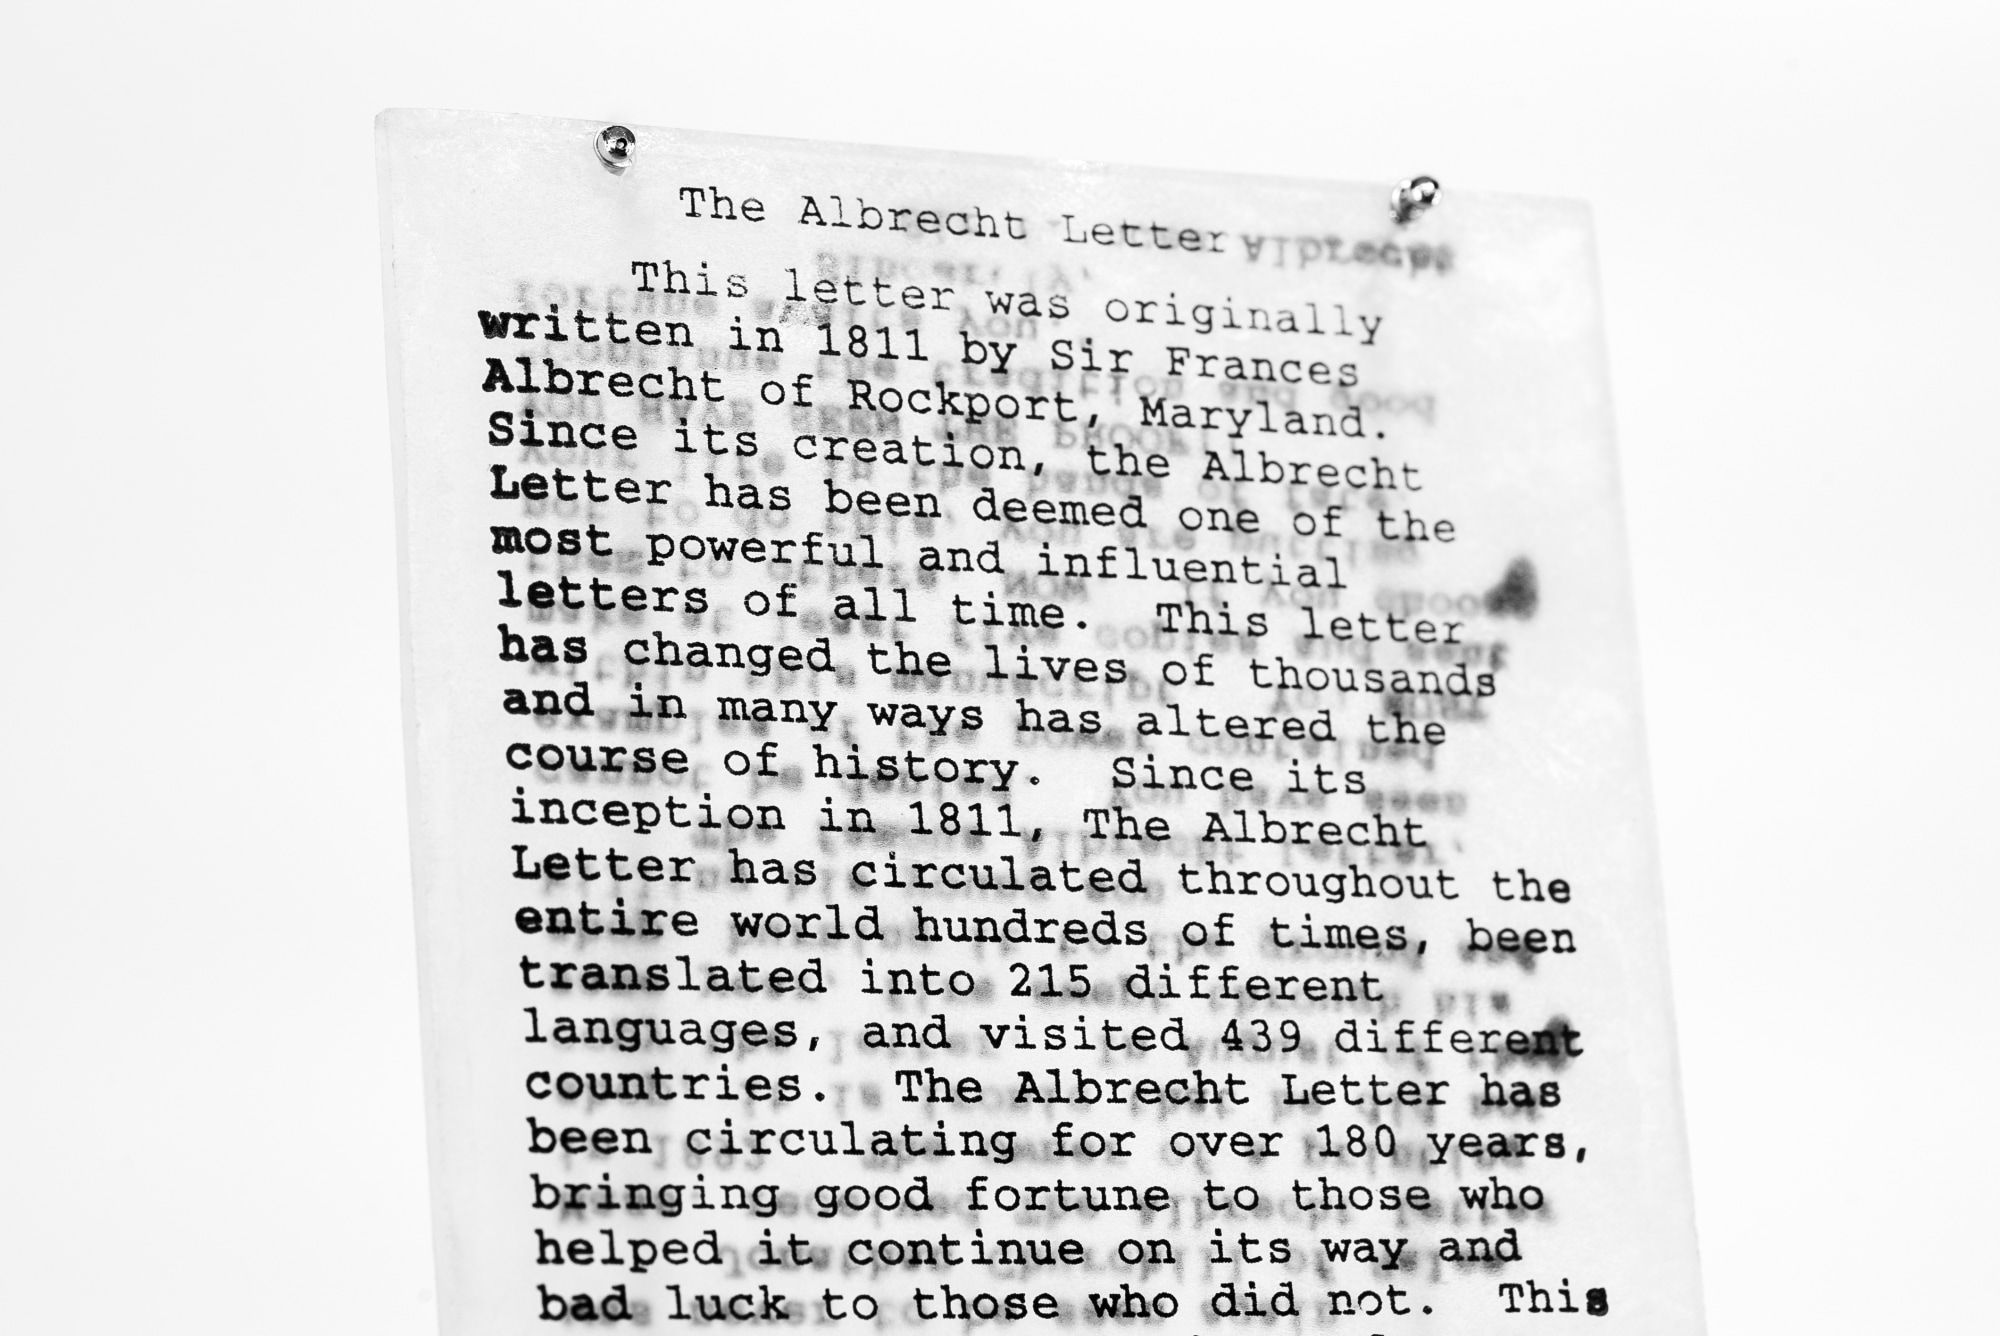 The Albrecht Letter
This letter was originally
written in 1811 by Sir Frances
Albrecht of Rockport, Maryland.
Since its creation, the Albrecht
Letter has been deemed one of the
most powerful and influential
letters of all time. This letter
has changed the lives of thousands
and in many ways has altered the
course of history. Since its
inception in 1811, The Albrecht
Letter has circulated throughout the
entire world hundreds of times, been
translated into 215 different
languages, and visited 439 different
countries. The Albrecht Letter has
been circulating for over 180 years,
bringing good fortune to those who
helped it continue on its way and
bad luck to those who did not. This